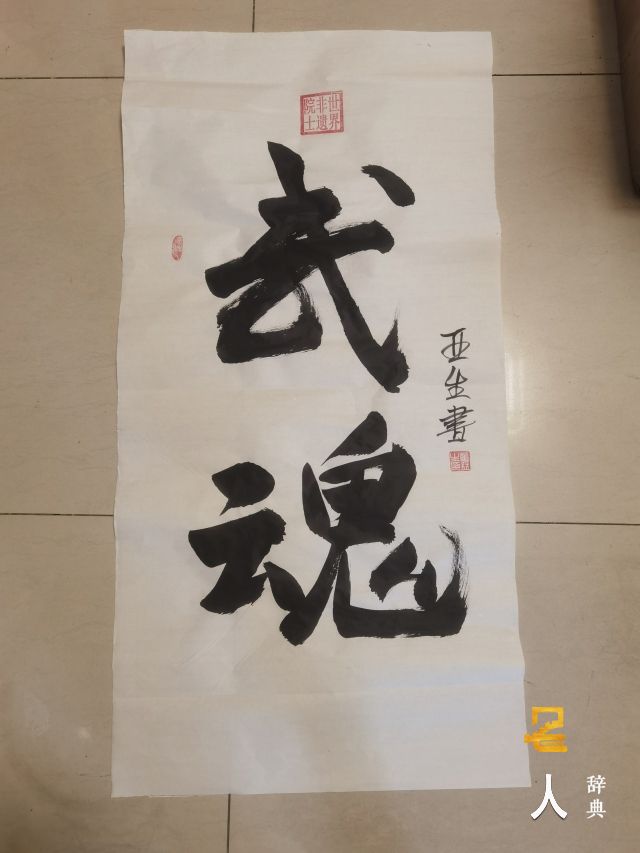 世界
非遗
院士
武魂
亚生書
名人
辞典